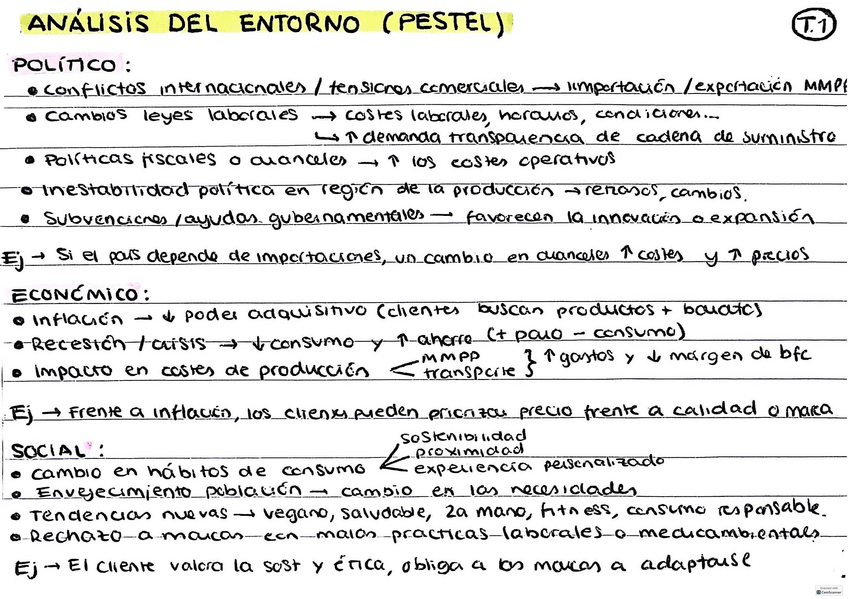 ANÁLISIS DEL ENTORNO (PESTEL)
T.1
POLÍTICO:
• Conflictos internacionales / tensiones comerciales → importación / exportación MMPP
• Cambios leyes laborales → costes laborales, horarios, condiciones...
↳ ↑ demanda transparencia de cadena de suministro
• Políticas fiscales o aranceles → ↑ los costes operativos
• Inestabilidad política en región de la producción → retrasos, cambios.
• Subvenciones / ayudas gubernamentales → favorecen la innovación o expansión
Ej → Si el país depende de importaciones, un cambio en aranceles ↑ costes y ↑ precios
ECONÓMICO:
• Inflación → ↓ poder adquisitivo (clientes buscan productos + barato)
• Recesión / crisis → ↓ consumo y ↑ ahorro (+ paro - consumo)
• Impacto en costes de producción < MMPP transporte } ↑ gastos y ↓ margen de bfc
Ej → Frente a inflación, los clientes pueden priorizar precio frente a calidad o marca
SOCIAL:
• Cambio en hábitos de consumo < sostenibilidad proximidad experiencia personalizado
• Envejecimiento población → cambio en las necesidades
• Tendencias nuevas → vegano, saludable, 2a mano, fitness, consumo responsable.
• Rechazo a marcas con malas practicas laborales o medioambientals
Ej → El cliente valora la sost y ética, obliga a las marcas a adaptarse
CamScanner